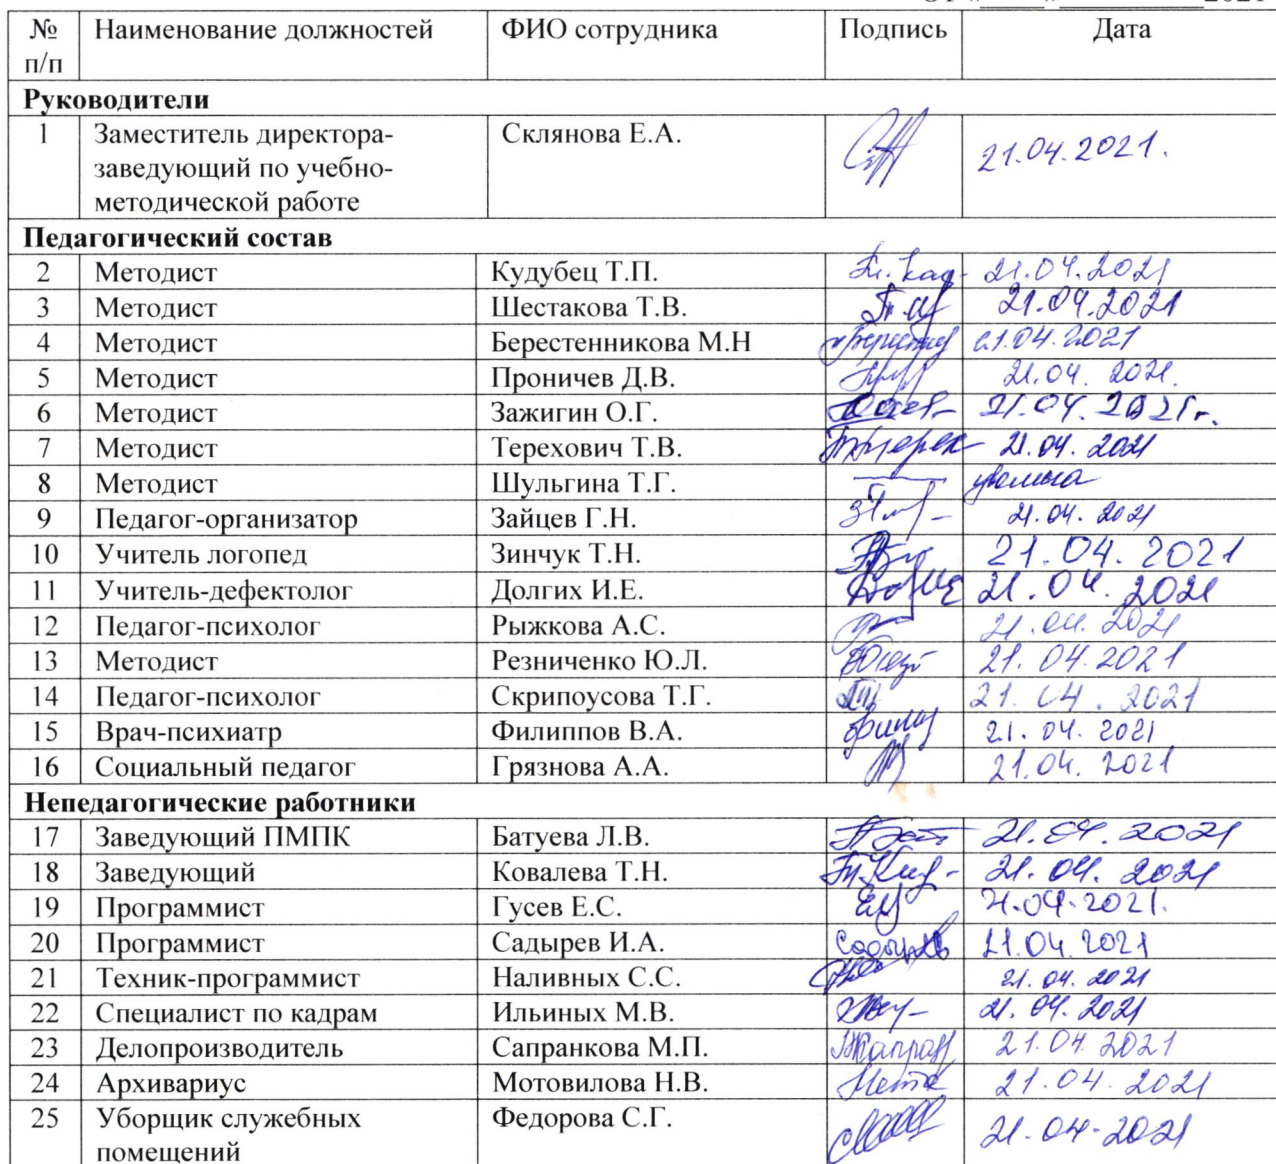 2021
№ Наименование должностей ФИО сотрудника Подпись Дата
п/п
Руководители
1 Заместитель директора- Склянова Е.А. 21.04.2021.
заведующий по учебно-
методической работе
Педагогический состав
2 Методист Кудубец Т.П. 21.04.2021
3 Методист Шестакова Т.В. 21.04.2021
4 Методист Берестенникова М.Н 21.04.2021
5 Методист Проничев Д.В. 21.04.2021.
6 Методист Зажигин О.Г. 21.04.2021г.
7 Методист Терехович Т.В. 21.04.2021
8 Методист Шульгина Т.Г.
9 Педагог-организатор Зайцев Г.Н. 21.04.2021
10 Учитель логопед Зинчук Т.Н. 21.04.2021
11 Учитель-дефектолог Долгих И.Е. 21.04.2021
12 Педагог-психолог Рыжкова А.С. 21.04.2021
13 Методист Резниченко Ю.Л. 21.04.2021
14 Педагог-психолог Скрипоусова Т.Г. 21.04.2021
15 Врач-психиатр Филиппов В.А. 21.04.2021
16 Социальный педагог Грязнова А.А. 21.04.2021
Непедагогические работники
17 Заведующий ПМПК Батуева Л.В. 21.04.2021
18 Заведующий Ковалева Т.Н. 21.04.2021
19 Программист Гусев Е.С. 21.04.2021.
20 Программист Садырев И.А. 21.04.2021
21 Техник-программист Наливных С.С. 21.04.2021
22 Специалист по кадрам Ильиных М.В. 21.04.2021
23 Делопроизводитель Сапранкова М.П. 21.04.2021
24 Архивариус Мотовилова Н.В. 21.04.2021
25 Уборщик служебных Федорова С.Г. 21.04.2021
помещений